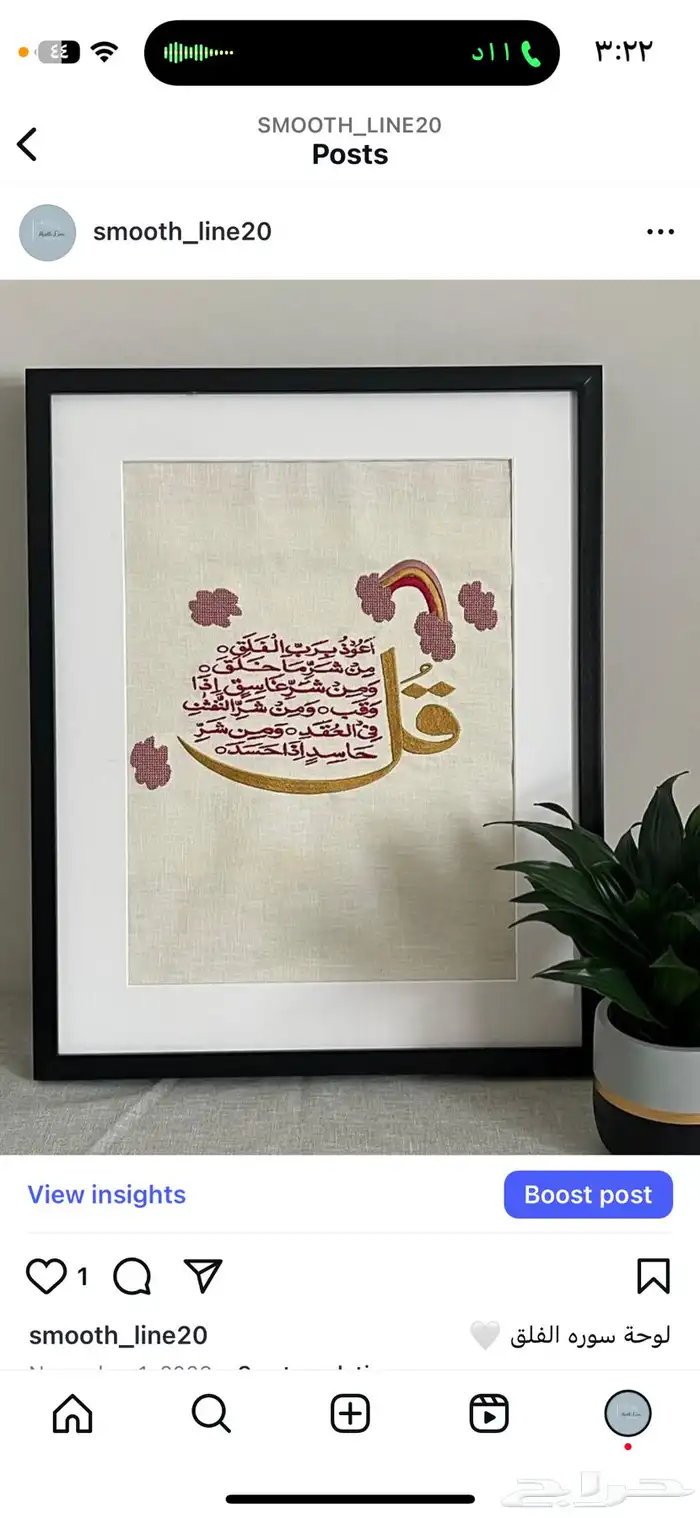 ٣:٢٢
٤٤
SMOOTH_LINE20
Posts
smooth_line20
قُل
أَعُوذُ بِرَبِّ الْفَلَقِ
مِن شَرِّ مَا خَلَقَ
وَمِن شَرِّ غَاسِقٍ إِذَا
وَقَبَ وَمِن شَرِّ النَّفّٰثٰتِ
فِي الْعُقَدِ وَمِن شَرِّ
حَاسِدٍ إِذَا حَسَدَ
View insights
Boost post
1
smooth_line20
لوحة سوره الفلق 🤍
حراج